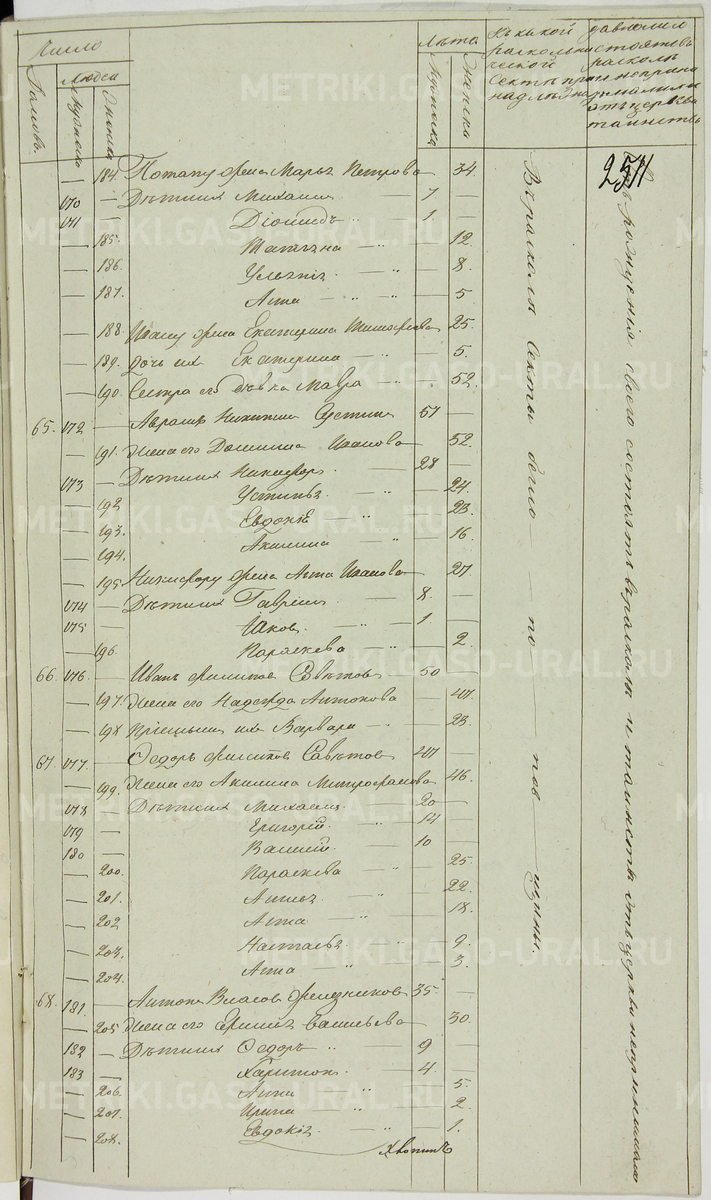 Число
Домовъ.
Людей
Мужеска
Женска
Лѣта
Мужеска
Женска
Къ какой раскольнической сектѣ принадлежатъ
давно ли состоятъ въ расколѣ и не принимали ли отъ церкви таинствъ
251
184 Потапу жена Марья Петрова 34.
170 Дѣти их Михаилъ 7
171 1
185. Татьяна 12
186. 8
187. Анна 5
188. Ивану жена Екатерина 25
189. дочь их Екатерина 5.
190. Сестра его дѣвка Мавра 52.
65. 172 Никитинъ 57
191. Жена его Домника Иванова 52.
173 Дѣти их Никифоръ 28
192 24
193. Евдокія 23.
194. Акилина 16
195 Никифору жена Анна Иванова 27
174 Дѣти их Гаврилъ 8.
175 Яковъ 1
196 Параскева 2
66. 176 Иванъ Филиповъ 50
197. Жена его Надежда Антонова 47.
198 их Варвара 23.
67. 177 Ѳедоръ Филиповъ 47
199. Жена его Акилина Митрофанова 46.
178 Дѣти их Михаилъ 20
179 Григорій 14
180 Василій 10
200. Параскева 25
201. 22
202 Анна 18.
203. Настасья 9
204. Анна 3.
68. 181 Антонъ Власовъ Железниковъ 35
205 Жена его Васильева 30.
182 Дѣти их Ѳедоръ 9
183 Харитонъ 4.
206. Анна 5
207. Ирина 2
208. Евдокія 1.
Въ расколѣ секты
съ рожденія своего состоятъ въ расколѣ и таинствъ отъ церкви не принимали
METRIKI.GASO-URAL.RU